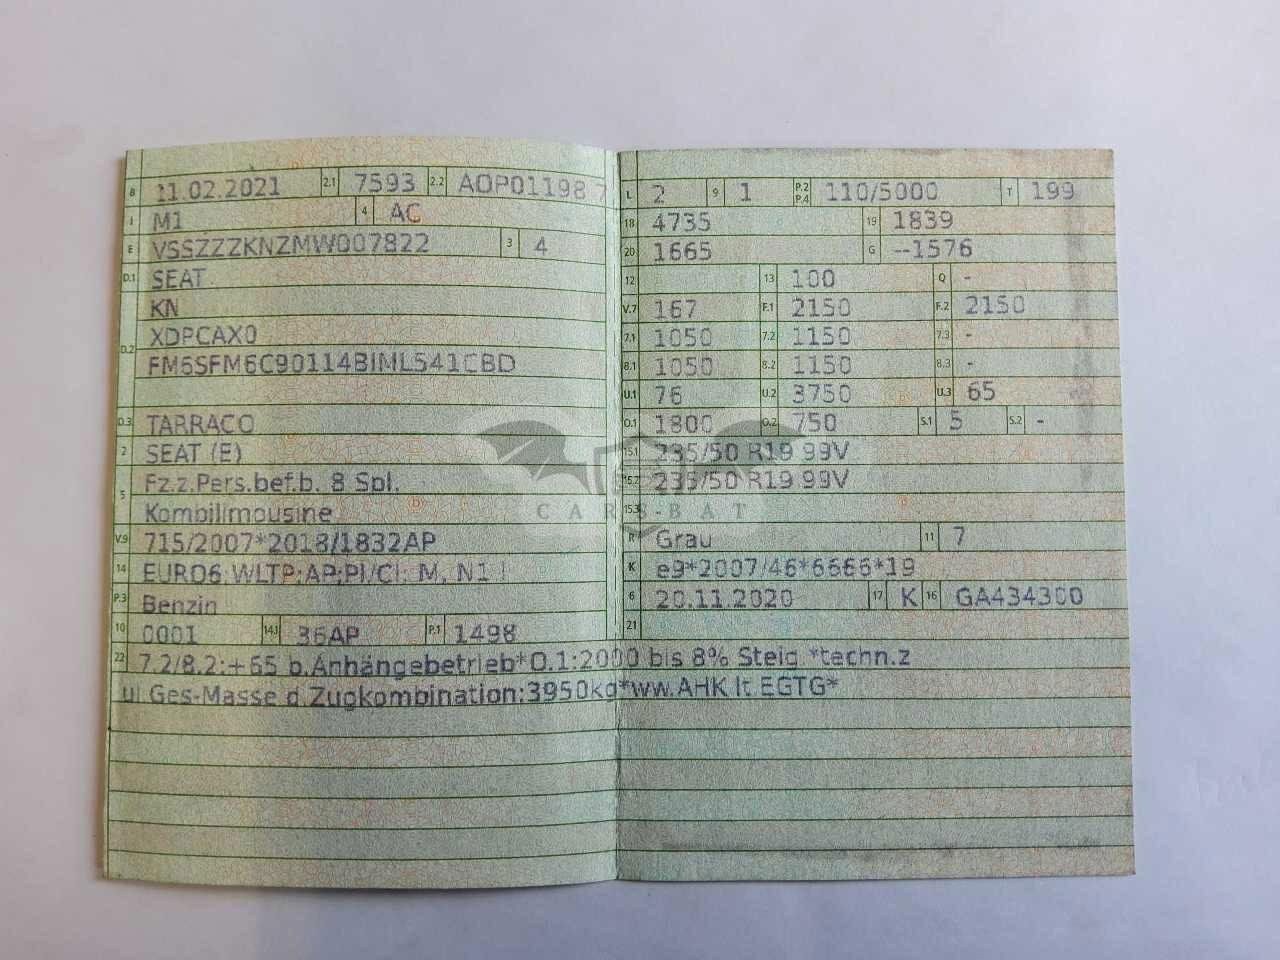 B 11.02.2021 2.1 7593 2.2 AOP01198 7
J M1 4 AC
E VSSZZZKNZMW007822 3 4
D.1 SEAT
KN
D.2 XDPCAX0
FM6SFM6C90114BIML541CBD
D.3 TARRACO
2 SEAT (E)
5 Fz.z.Pers.bef.b. 8 Spl.
Kombilimousine
V.9 715/2007*2018/1832AP
14 EURO6;WLTP;AP;PI/CI; M, N1 I
P.3 Benzin
10 0001 14.1 36AP P.1 1498
L 2 9 1 P.2 P.4 110/5000 T 199
18 4735 19 1839
20 1665 G --1576
12 13 100 Q -
V.7 167 F.1 2150 F.2 2150
7.1 1050 7.2 1150 7.3 -
8.1 1050 8.2 1150 8.3 -
U.1 76 U.2 3750 U.3 65
O.1 1800 O.2 750 S.1 5 S.2 -
15.1 235/50 R19 99V
15.2 235/50 R19 99V
15.3
R Grau 11 7
K e9*2007/46*6666*19
6 20.11.2020 17 K 16 GA434300
21
22 7.2/8.2:+65 b.Anhängebetrieb*O.1:2000 bis 8% Steig.*techn.z
ul.Ges-Masse d.Zugkombination:3950kg*ww.AHK lt.EGTG*
CARS-BAT